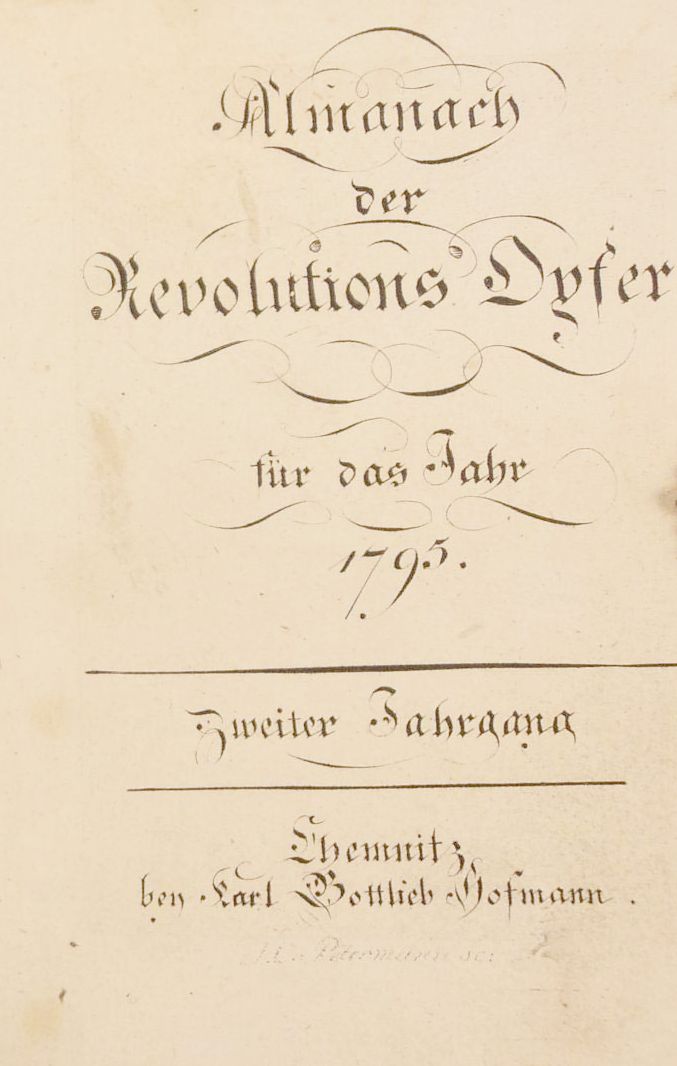 Almanach
der
Revolutions Opfer
für das Jahr
1795.
Zweiter Jahrgang
Chemnitz,
bey Karl Gottlieb Hofmann.
Petermann sc: